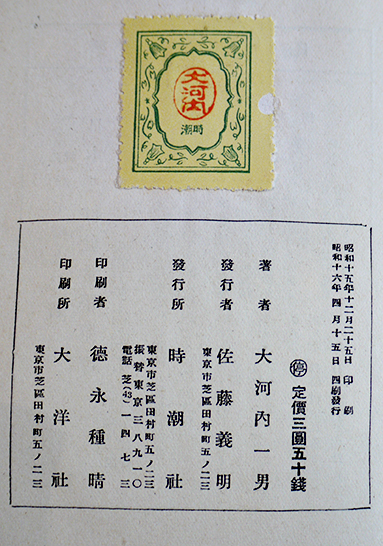 大河内
時潮
昭和十五年十二月二十五日 印刷
昭和十六年四月十五日 四刷發行
停 定價三圓五十錢
著者 大河內一男
發行者 佐藤義明
東京市芝區田村町五ノ二三
發行所 時潮社
東京市芝區田村町五ノ二三
振替東京三八九一〇
電話芝(43)一四七三
印刷者 德永種晴
印刷所 大洋社
東京市芝區田村町五ノ二三